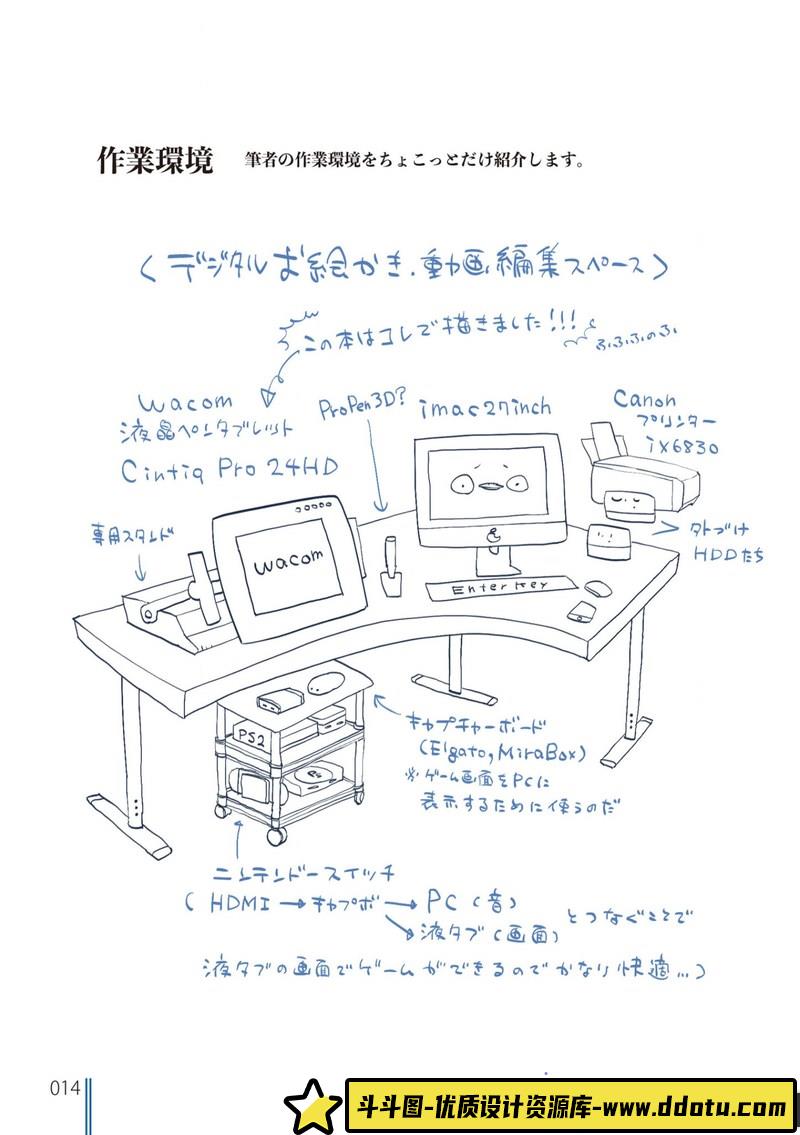 作業環境 筆者の作業環境をちょこっとだけ紹介します。
〈デジタルお絵かき、動画編集スペース〉
この本はコレで描きました!!!
ふふふのふ
wacom
液晶ペンタブレット
Cintiq Pro 24HD
ProPen3D?
imac27inch
Canon
プリンター
ix6830
専用スタンド
wacom
外づけ
HDDたち
EnterKey
PS2
キャプチャーボード
(Elgato, MiraBox)
※ゲーム画面をPCに
表示するために使うのだ
ニンテンドースイッチ
(HDMI→キャプボ→PC(音)
→液タブ(画面)
とつなぐことで
液タブの画面でゲームができるのでかなり快適…)
014
斗斗图-优质设计资源库-www.ddotu.com